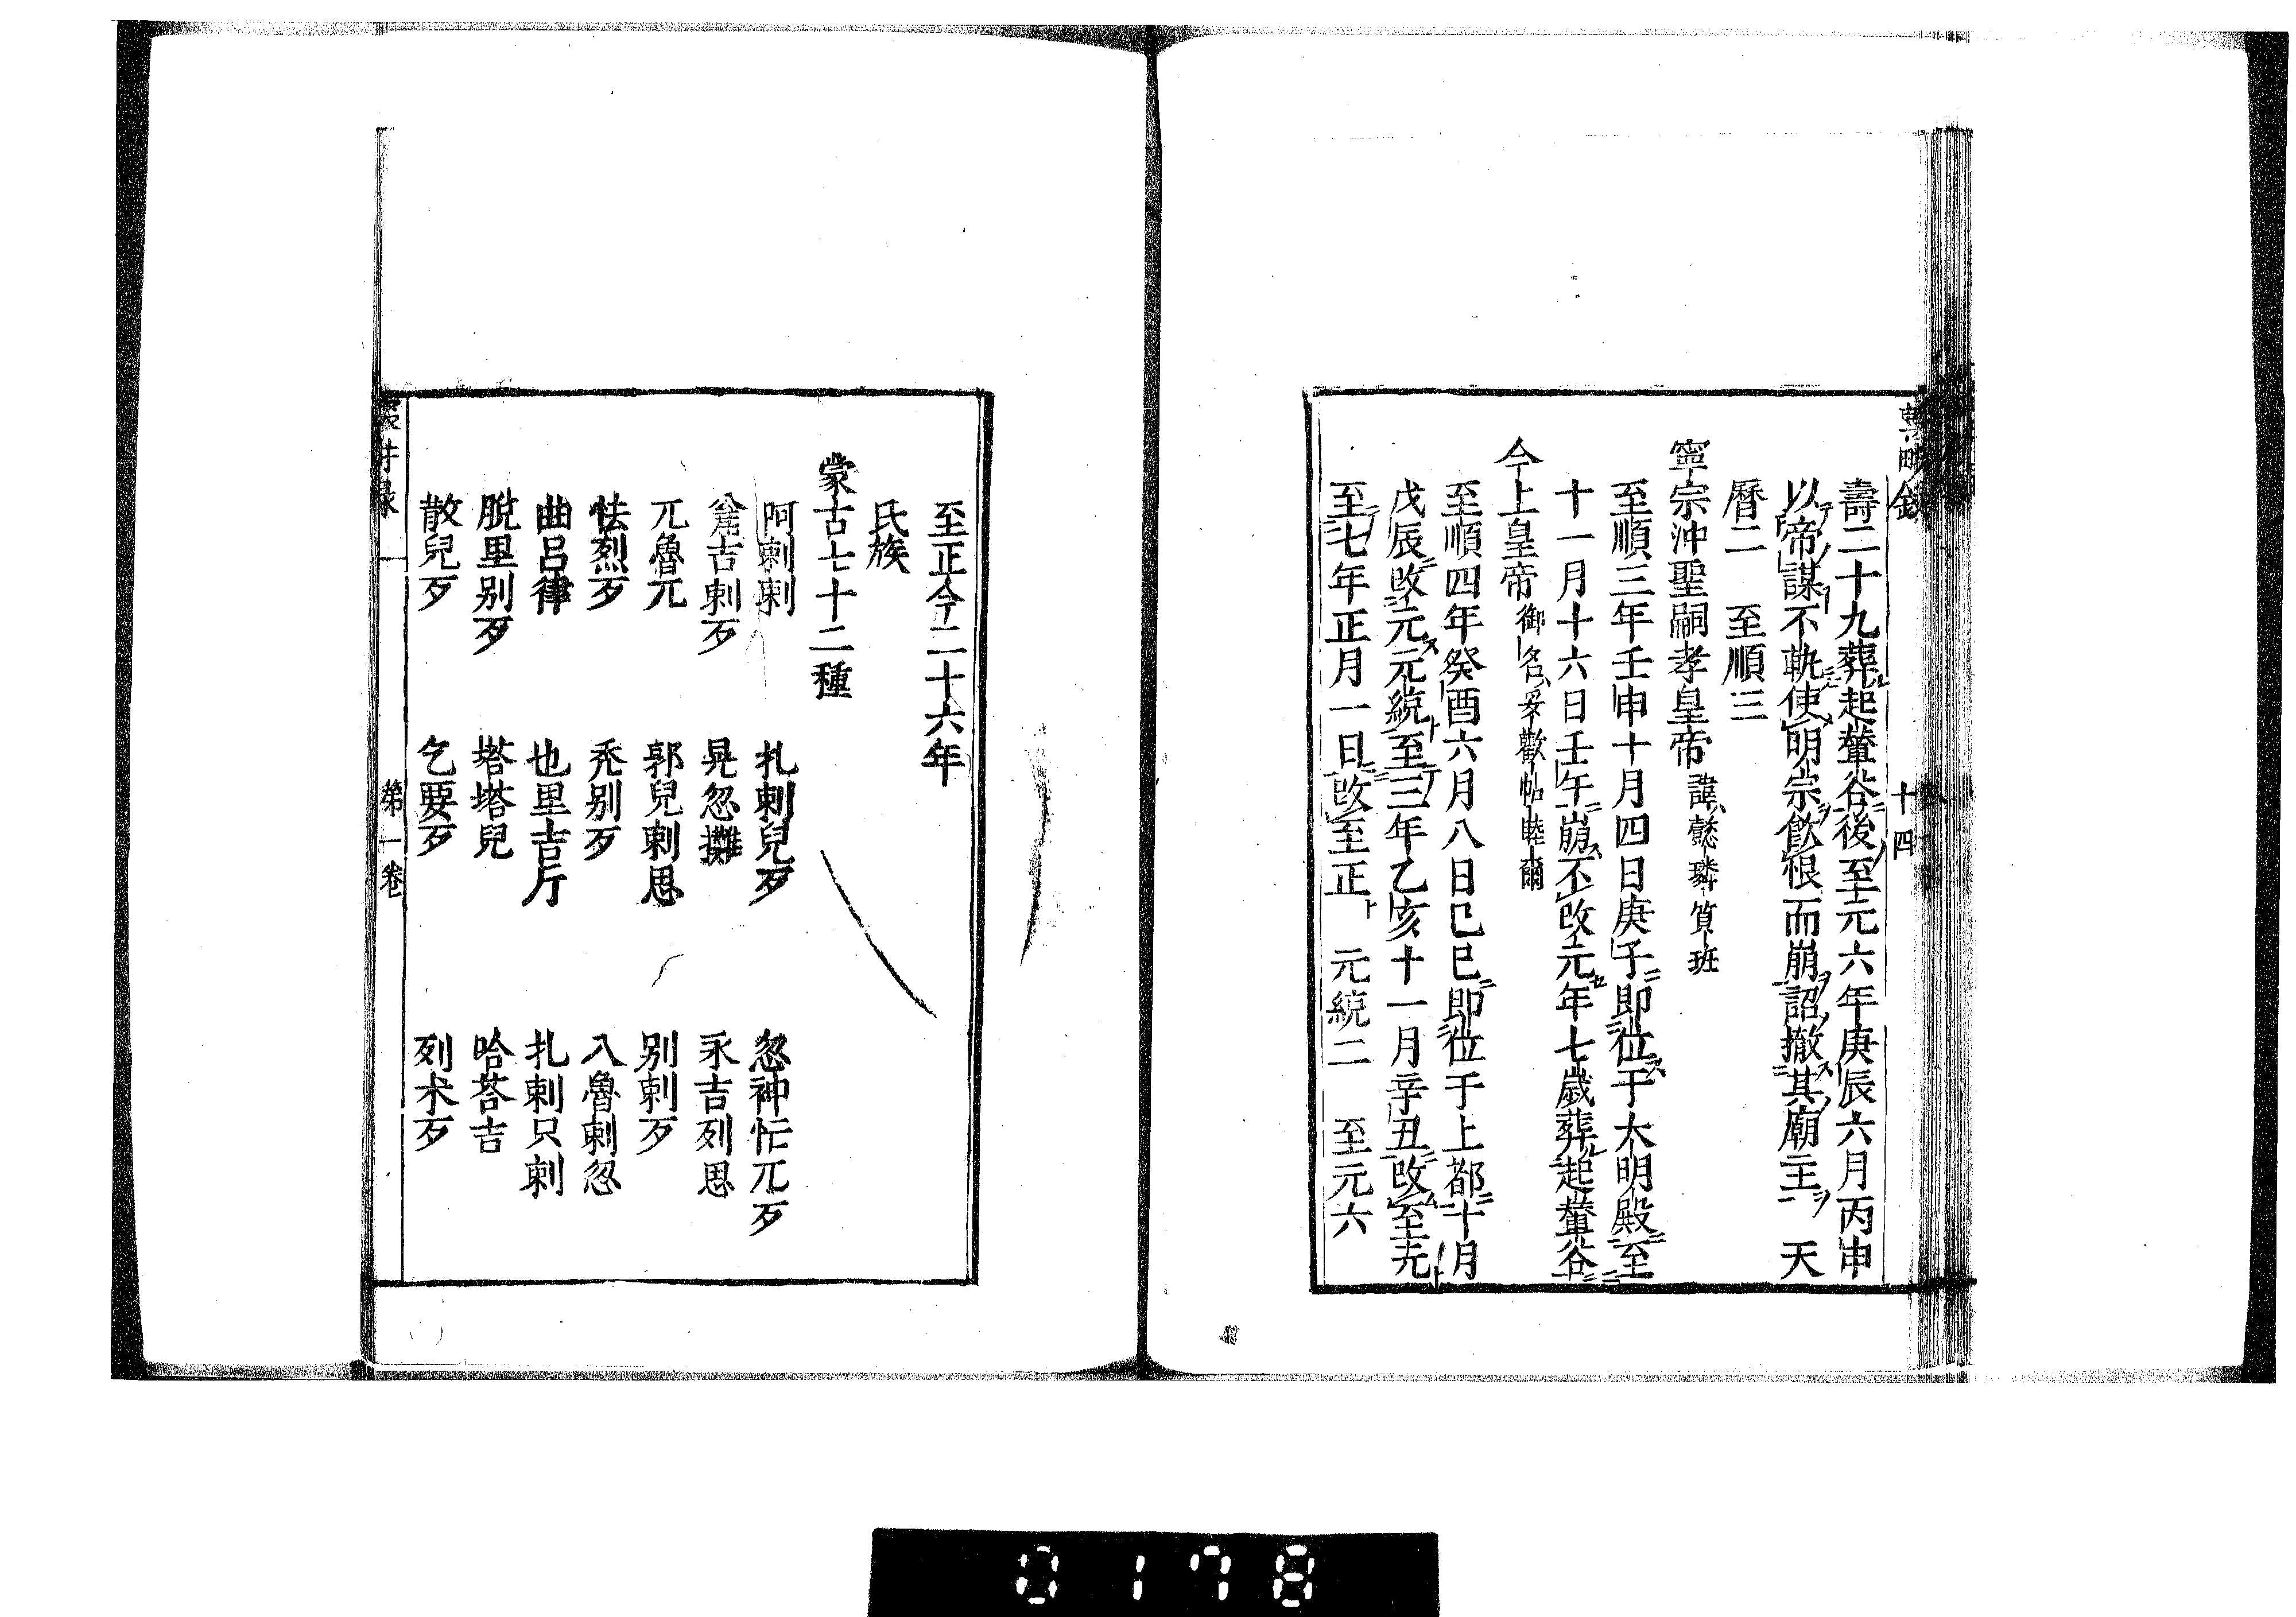 十四
壽二十九葬起輦谷後至元六年庚辰六月丙申
以帝謀不軌使明宗飮恨而崩詔撤其廟主 天
曆二 至順三
寧宗沖聖嗣孝皇帝 諱懿璘質班
至順三年壬申十月四日庚子即位于大明殿至
十一月十六日壬午崩不改元年七歳葬起輦谷
今上皇帝 御名妥歡帖睦爾
至順四年癸酉六月八日己巳即位于上都十月
戊辰改元元統至三年乙亥十一月辛丑改至元
至七年正月一日改至正 元統二 至元六
至正今二十六年
氏族
蒙古七十二種
阿剌剌 扎剌兒歹 忽神忙兀歹
瓮吉剌歹 晃忽攤 永吉列思
兀魯兀 郭兒剌思 別剌歹
怯烈歹 禿別歹 八魯剌忽
曲呂律 也里吉斤 扎剌只剌
脫里別歹 塔塔兒 哈荅吉
散兒歹 乞要歹 列朮歹
第一卷
0178